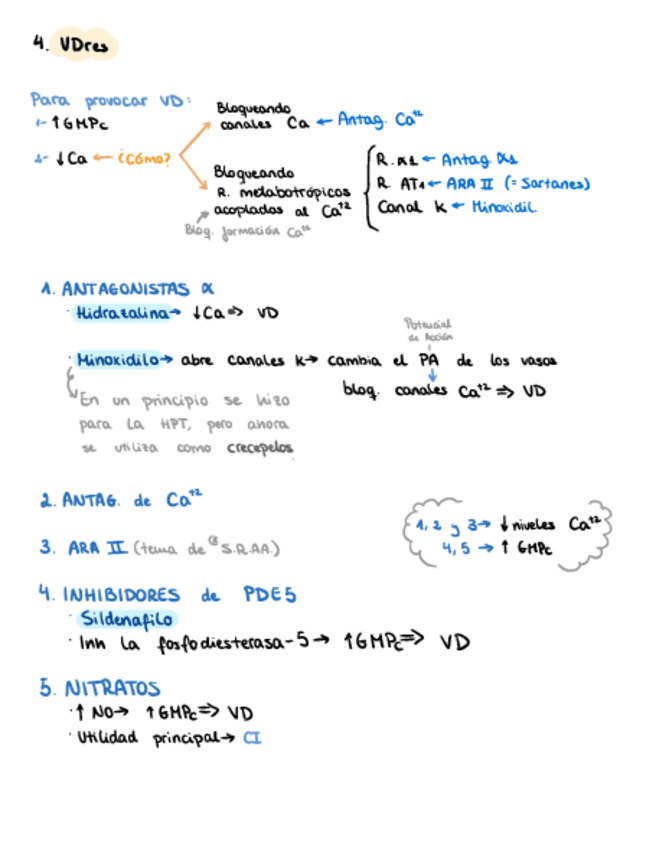 4. VDres
Para provocar VD:
1- ↑GMPc
2- ↓Ca ← ¿Cómo?
Bloqueando
canales Ca ← Antag. Ca⁺²
Bloqueando
R. metabotrópicos
acoplados al Ca⁺²
Bloq. formación Ca⁺²
R. α1 ← Antag. α1
R. AT1 ← ARA II (= Sartanes)
Canal K ← Minoxidil
1. ANTAGONISTAS α
· Hidrazalina → ↓Ca ⇒ VD
Potencial
de Acción
· Minoxidilo → abre canales K → cambia el PA de los vasos
bloq. canales Ca⁺² ⇒ VD
En un principio se hizo
para la HPT, pero ahora
se utiliza como crecepelos
2. ANTAG. de Ca⁺²
3. ARA II (tema de S.R.A.A.)
1, 2 y 3 → ↓ niveles Ca⁺²
4, 5 → ↑ GMPc
4. INHIBIDORES de PDE5
· Sildenafilo
· Inh la fosfodiesterasa-5 → ↑GMPc ⇒ VD
5. NITRATOS
· ↑ NO → ↑GMPc ⇒ VD
· Utilidad principal → CI